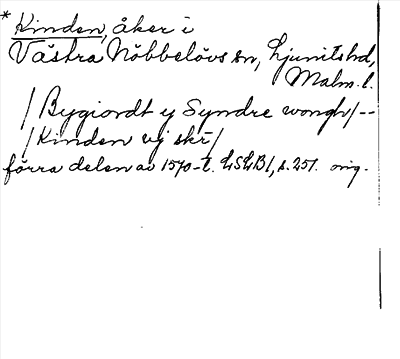 * Kinden, åker i
Västra Nöbbelövs sn, Ljunits hd,
Malm. l.
/ Bygiordt y Syndre wongh / --
/ Kinden vj skr̄ /
förra delen av 1570-t. LSLB 1, s. 251. orig.